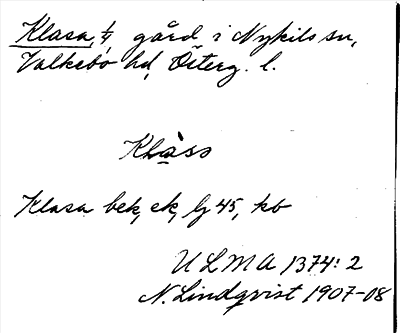 Klasa, 1/4 gård i Nykils sn,
Valkebo hd, Österg. l.
Klàss
Klasa bek, ek, lj 45, kb
ULMA 1374:2
N. Lindqvist 1907-08